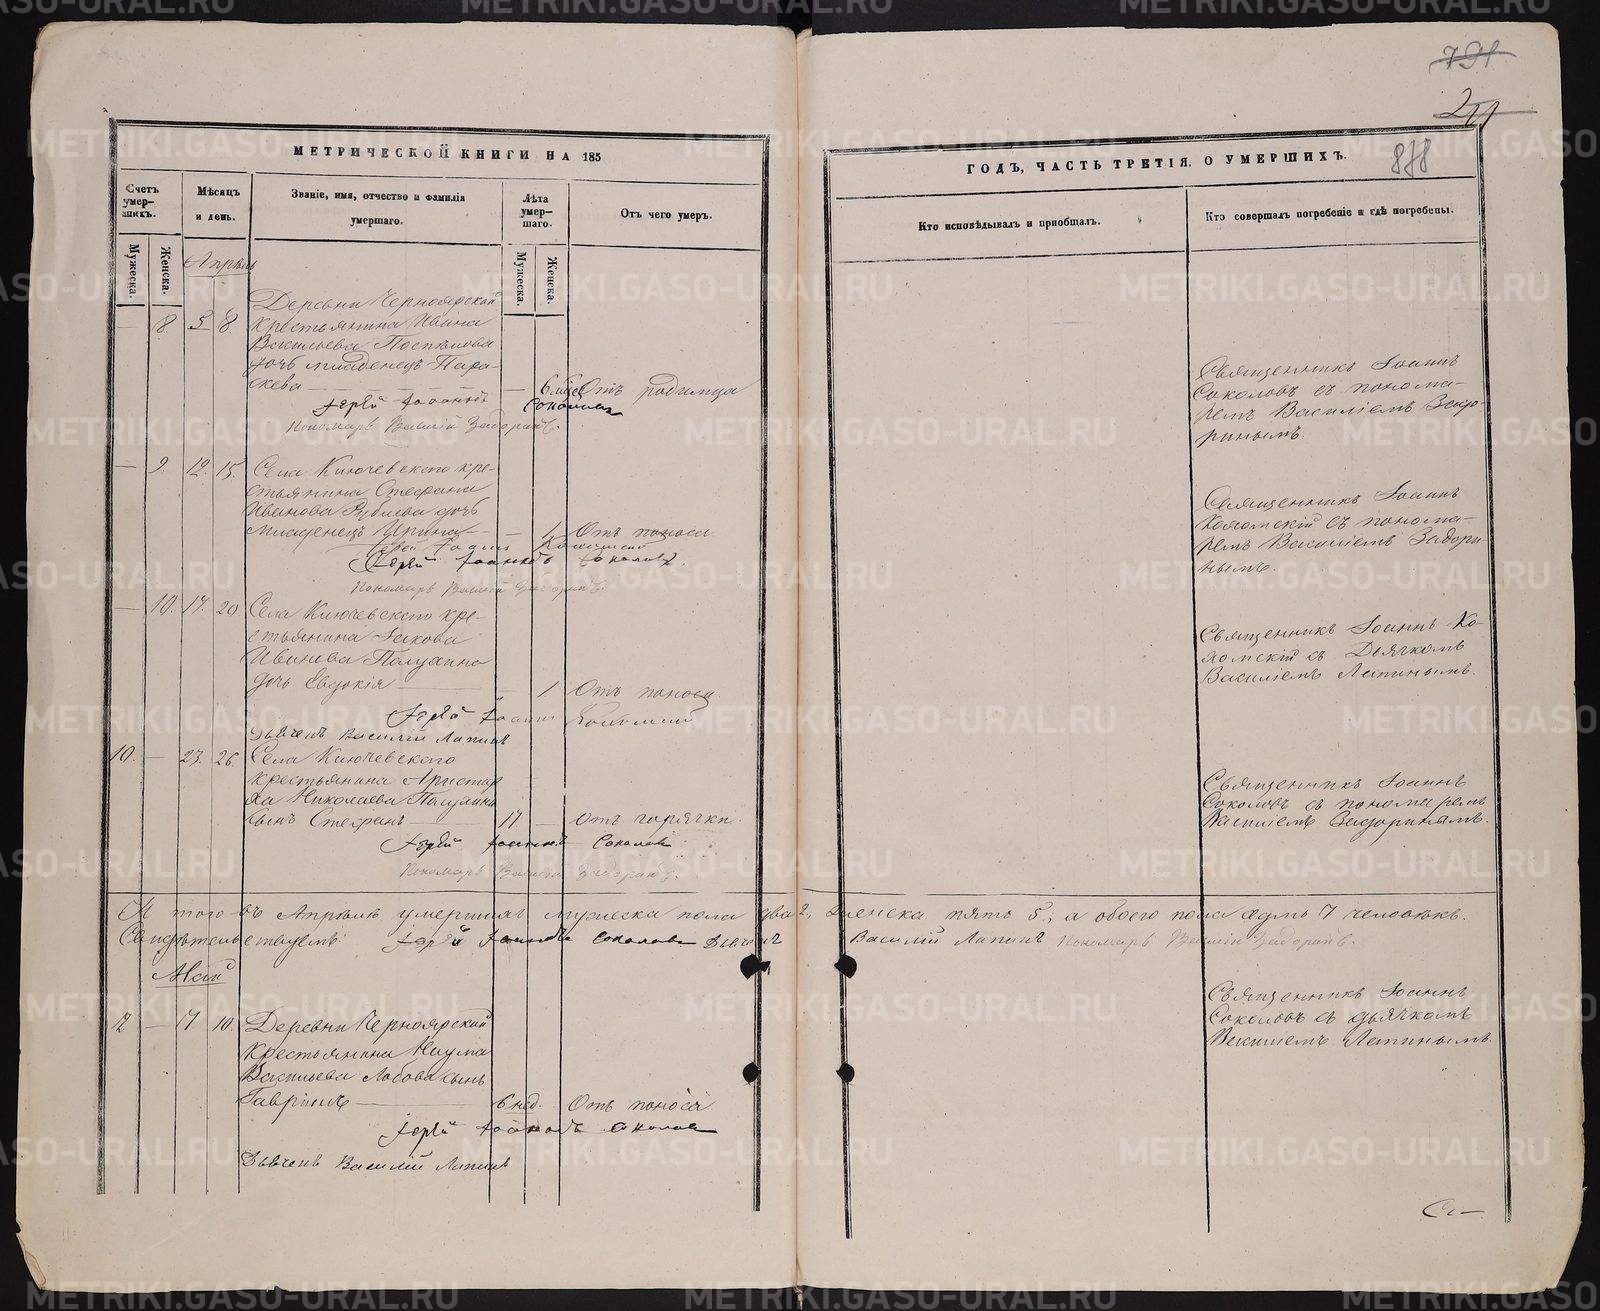 МЕТРИЧЕСКОЙ КНИГИ НА 185
Счетъ умер-шихъ.
Мѣсяцъ и день.
Званіе, имя, отчество и фамилія умершаго.
Лѣта умер-шаго.
Отъ чего умеръ.
Мужеска.
Женска.
Мужеска.
Женска.
Апрѣль
— 8. 5 8. Деревни Черноярской
крестьянина Ивана
Васильева Поспѣлова
дочь младенецъ Пара-
скева — 6 мѣс Отъ родимца
Іерей Іоаннъ Соколовъ
Пономарь Василій Задоринъ.
— 9. 12. 15. Села Ключевскаго кре-
стьянина Стефана
Иванова дочь
младенецъ Ирина — 1. Отъ поноса
Іерей Іоаннъ Коломскій
Іерей Іоаннъ Соколовъ.
Пономарь Василій Задоринъ.
— 10. 17. 20. Села Ключевскаго кре-
стьянина Іакова
Иванова Полухина
дочь Евдокія — 1 Отъ поноса
Іерей Іоаннъ
Дьячекъ Василій Лапинъ
10. — 23. 26. Села Ключевскаго
крестьянина Аристар
ха Николаева Полухина
сынъ Стефанъ 17 — Отъ горячки.
Іерей Іоаннъ Соколовъ
Пономарь Василій Задоринъ.
И того въ Апрѣлѣ умершихъ мужеска пола два 2, женска пять 5, а обоего пола седмь 7 человѣкъ.
Свидѣтельствуемъ: Іерей Іоаннъ Соколовъ Дьячекъ Василій Лапинъ Пономарь Василій Задоринъ.
Май
2 — 7 10. Деревни Черноярской
крестьянина Наума
Васильева Лобова сынъ
Гавріилъ — 6 нед. Отъ поноса
Іерей Іоаннъ Соколовъ
Дьячекъ Василій Лапинъ
791
211
ГОДЪ, ЧАСТЬ ТРЕТІЯ, О УМЕРШИХЪ.
878
Кто исповѣдывалъ и пріобщалъ.
Кто совершалъ погребеніе и гдѣ погребены.
Священникъ Іоаннъ
Соколовъ съ понома-
ремъ Василіемъ Задо-
ринымъ.
Священникъ Іоаннъ
съ понома-
ремъ Василіемъ Задори-
нымъ.
Священникъ Іоаннъ Ко-
ломскій съ Дьячкомъ
Василіемъ Лапинымъ.
Священникъ Іоаннъ
Соколовъ съ пономаремъ
Василіемъ Задоринымъ.
Священникъ Іоаннъ
Соколовъ съ дьячкомъ
Василіемъ Лапинымъ.
METRIKI.GASO-URAL.RU